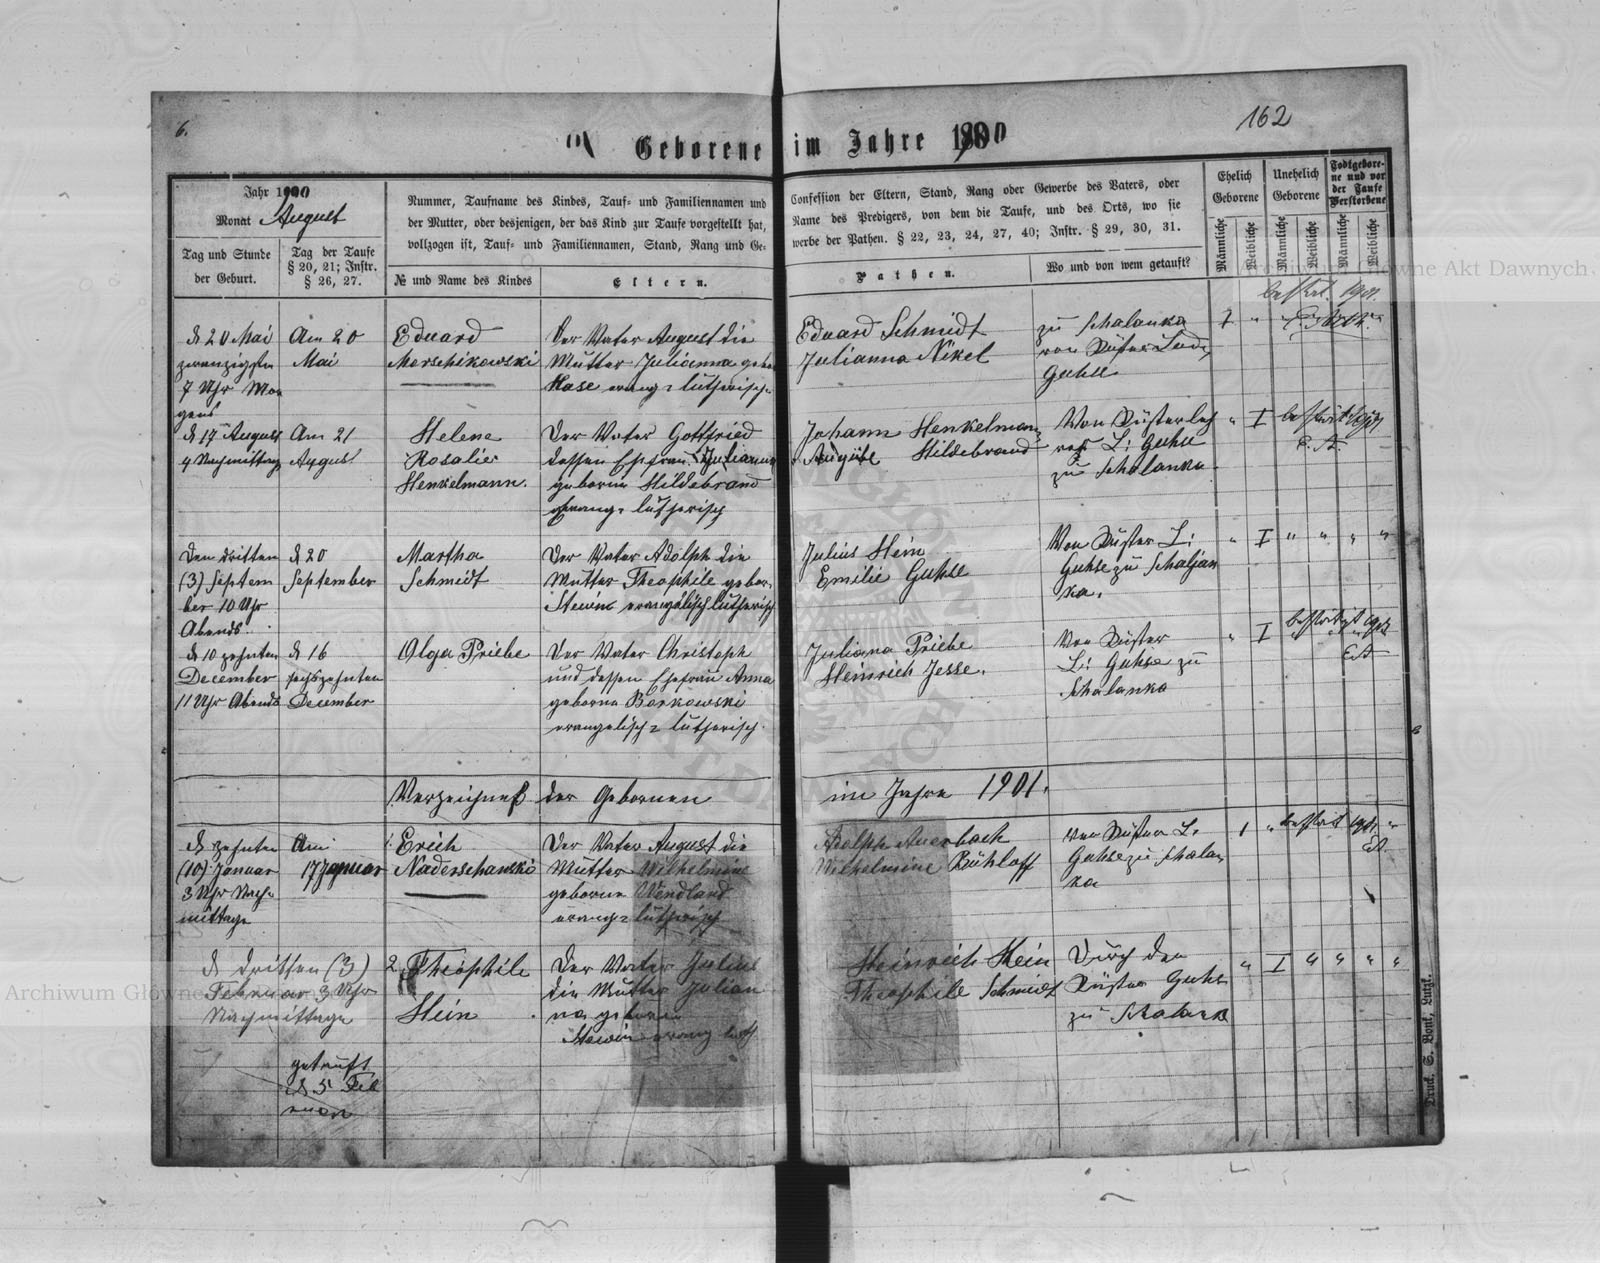 6.
162
Geborene im Jahre 1900
Jahr 1900
Monat August
Nummer, Taufname des Kindes, Tauf- und Familiennamen und
der Mutter, oder desjenigen, der das Kind zur Taufe vorgestellt hat,
vollzogen ist, Tauf- und Familiennamen, Stand, Rang und Ge-
Confession der Eltern, Stand, Rang oder Gewerbe des Vaters, oder
Name des Predigers, von dem die Taufe, und des Orts, wo sie
werbe der Pathen. § 22, 23, 24, 27, 40; Instr. § 29, 30, 31.
Ehelich
Geborene
Unehelich
Geborene
Todtgebore-
ne und vor
der Taufe
Verstorbene
Tag und Stunde
der Geburt.
Tag der Taufe
§ 20, 21; Instr.
§ 26, 27.
№ und Name des Kindes
Eltern.
Pathen.
Wo und von wem getauft?
Männliche
Weibliche
Männliche
Weibliche
Männliche
Weibliche
d 20 Mai
7 Uhr Mor
gens
Am 20
Mai
Eduard
Marschikowski
Der Vater August die
Mutter Julianna gebor
Hase evang= lutherisch
Eduard Schmidt
Julianna Nikel
zu Schalanka
von Küster Ludw
Guhse
1901.
d 17 August
4 Nachmittag
Am 21
August
Helene
Rosalie
Henkelmann.
Der Vater Gottfried
dessen Ehefrau Julianna
geborne Hildebrand
evang= lutherisch
Johann Henkelman
Auguste Hildebrand
Von Küsterleh
rer L: Guhse
zu Schalanka.
" I
Den dritten
(3) Septem
ber 10 Uhr
Abends.
d 20
September
Martha
Schmidt
Der Vater Adolph die
Mutter Theophile gebor.
evangelisch lutherisch
Julius Hein
Emilie Guhse
Von Küster L:
Guhse zu Schaljan
ka.
" I " " " "
d 10 zehnten
December
11 Uhr Abends
d 16
sechszehnten
December
Olga Priebe
Der Vater Christoph
und dessen Ehefrau Anna
geborne Borkowski
evangelisch= lutherisch.
Juliana Priebe
Heinrich Jesse.
Von Küster
L: Guhse zu
Schalanka
" I
Verzeichness der Gebornen im Jahre 1901.
d zehnten
(10) Januar
3 Uhr Nach-
mittags
Am
17 Januar
1. Erich
Naderschanski
Der Vater August die
Mutter Wilhelmine
geborne Wendland
evang= lutherisch
Adolph Auerbach
Wilhelmine Rühloff
von Küster L.
Guhse zu Schalan
ka
d dritten (3)
Februar 3 Uhr
Nachmittags
getauft
d 5 Feb
ruar
2. Theophile
Hein
Der Vater Julius
die Mutter Julian
na geboren
evang luth
Heinrich Hein
Theophile Schmidt
Durch den
Küster Guhse
zu Schalanka
" I " " " "
Druck. S. Bonk, Lutzk.
Archiwum Główne Akt Dawnych
Archiwum Główne